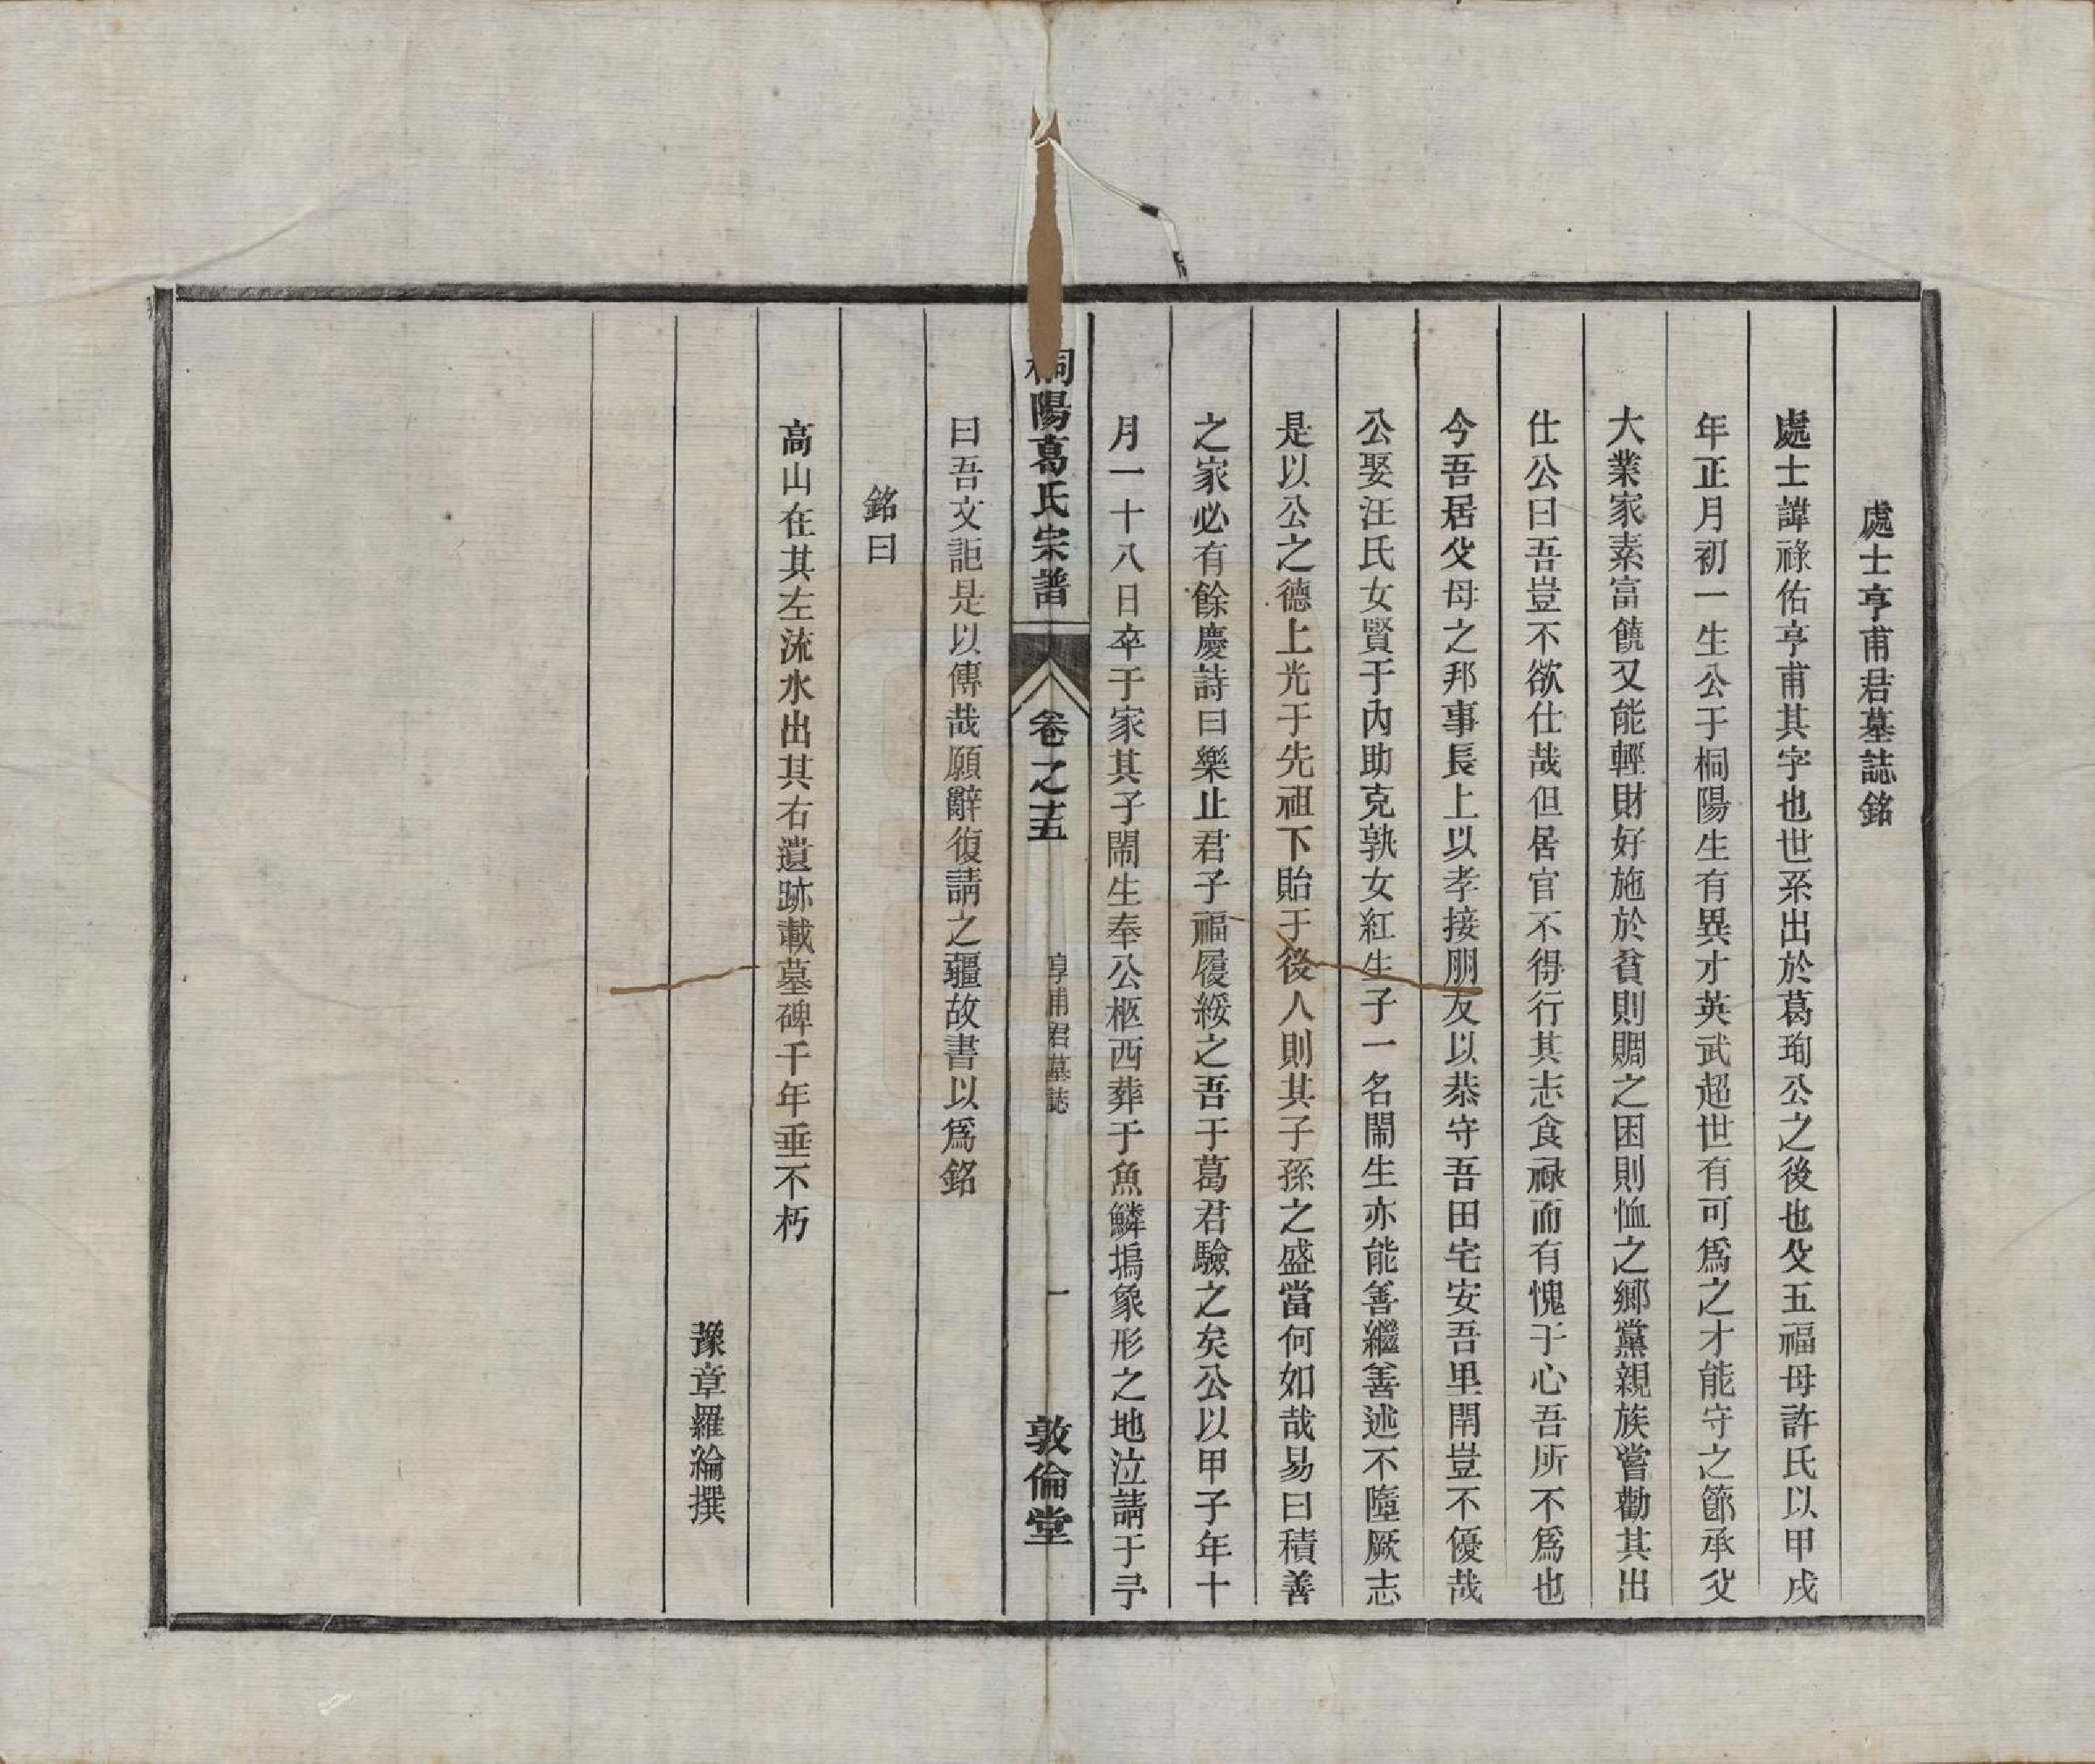 處士亨甫君墓誌銘
處士諱祿佑亨甫其字也世系出於葛珣公之後也父五福母許氏以甲戌
年正月初一生公于桐陽生有異才英武超世有可爲之才能守之節承父
大業家素富饒又能輕財好施於貧則賙之困則恤之鄉黨親族嘗勸其出
仕公曰吾豈不欲仕哉但居官不得行其志食祿而有愧于心吾所不爲也
今吾居父母之邦事長上以孝接朋友以恭守吾田宅安吾里閈豈不優哉
公娶汪氏女賢于內助克孰女紅生子一名閙生亦能善繼善述不墮厥志
是以公之德上光于先祖下貽于後人則其子孫之盛當何如哉易曰積善
之家必有餘慶詩曰樂止君子福履綏之吾于葛君驗之矣公以甲子年十
月一十八日卒于家其子閙生奉公柩西葬于魚鱗塢象形之地泣請于予
桐陽葛氏宗譜
卷之十五
亨甫君墓誌
一
敦倫堂
曰吾文詎是以傳哉願辭復請之疆故書以爲銘
銘曰
高山在其左流水出其右遺跡載墓碑千年垂不朽
豫章羅綸撰